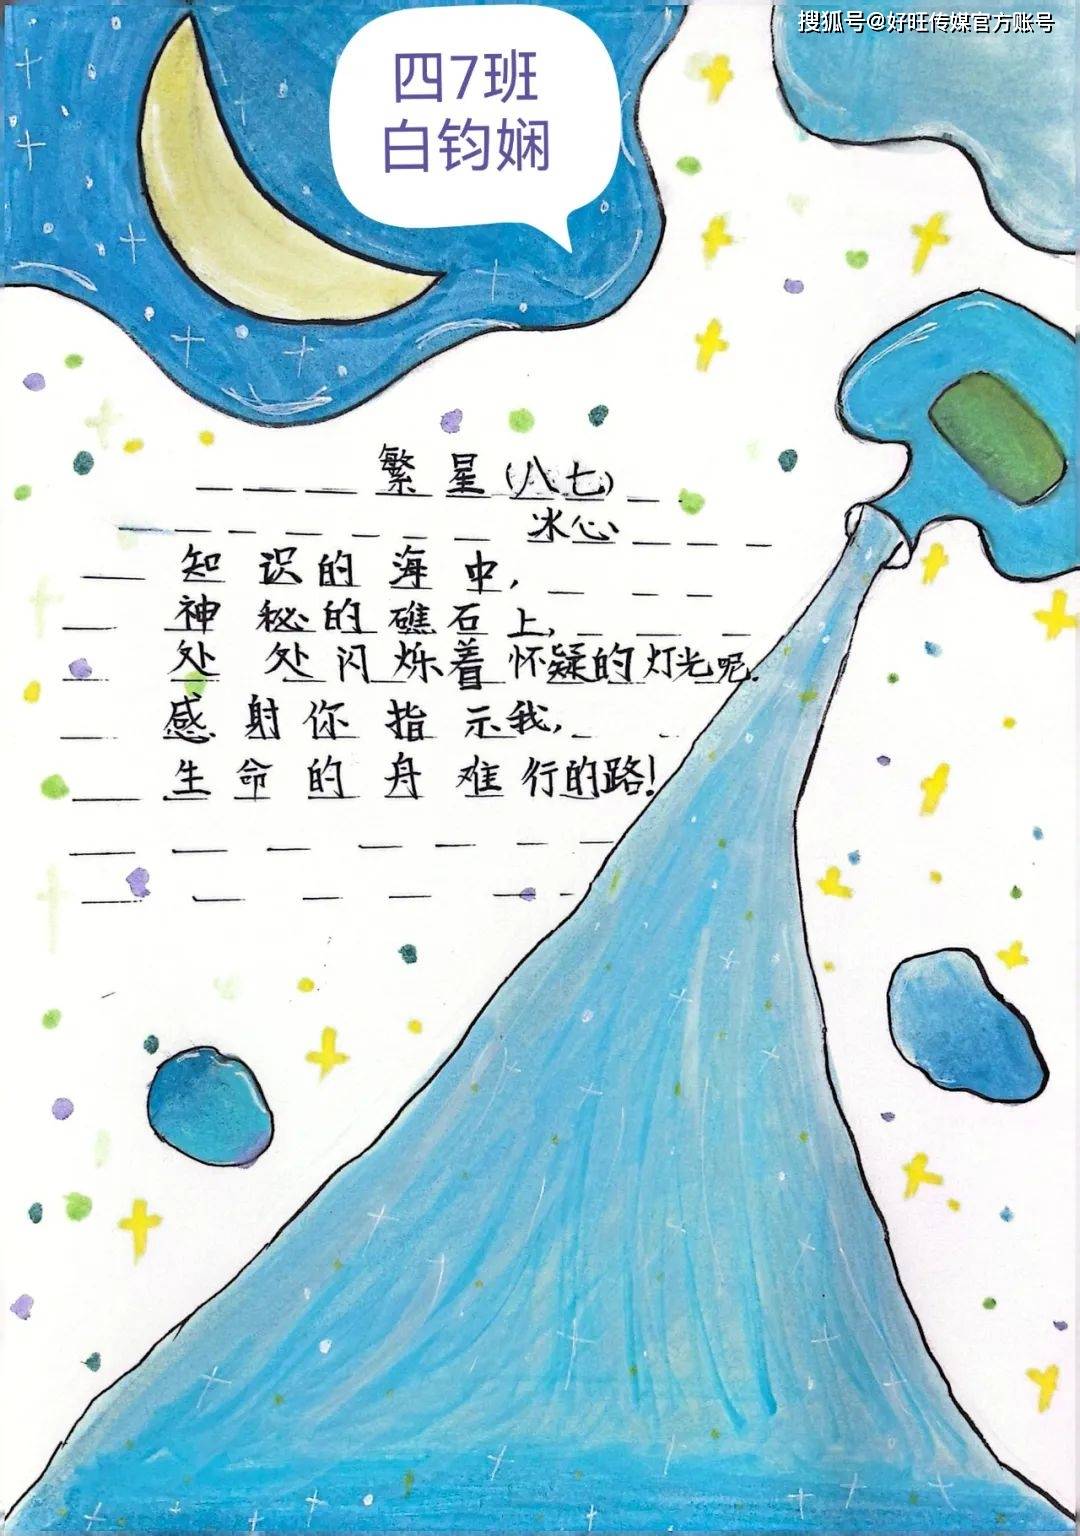 搜狐号@好旺传媒官方账号
四7班
白钧娴
繁星(八七)
冰心
知识的海中,
神秘的礁石上,
处处闪烁着怀疑的灯光呢.
感射你指示我,
生命的舟难行的路!